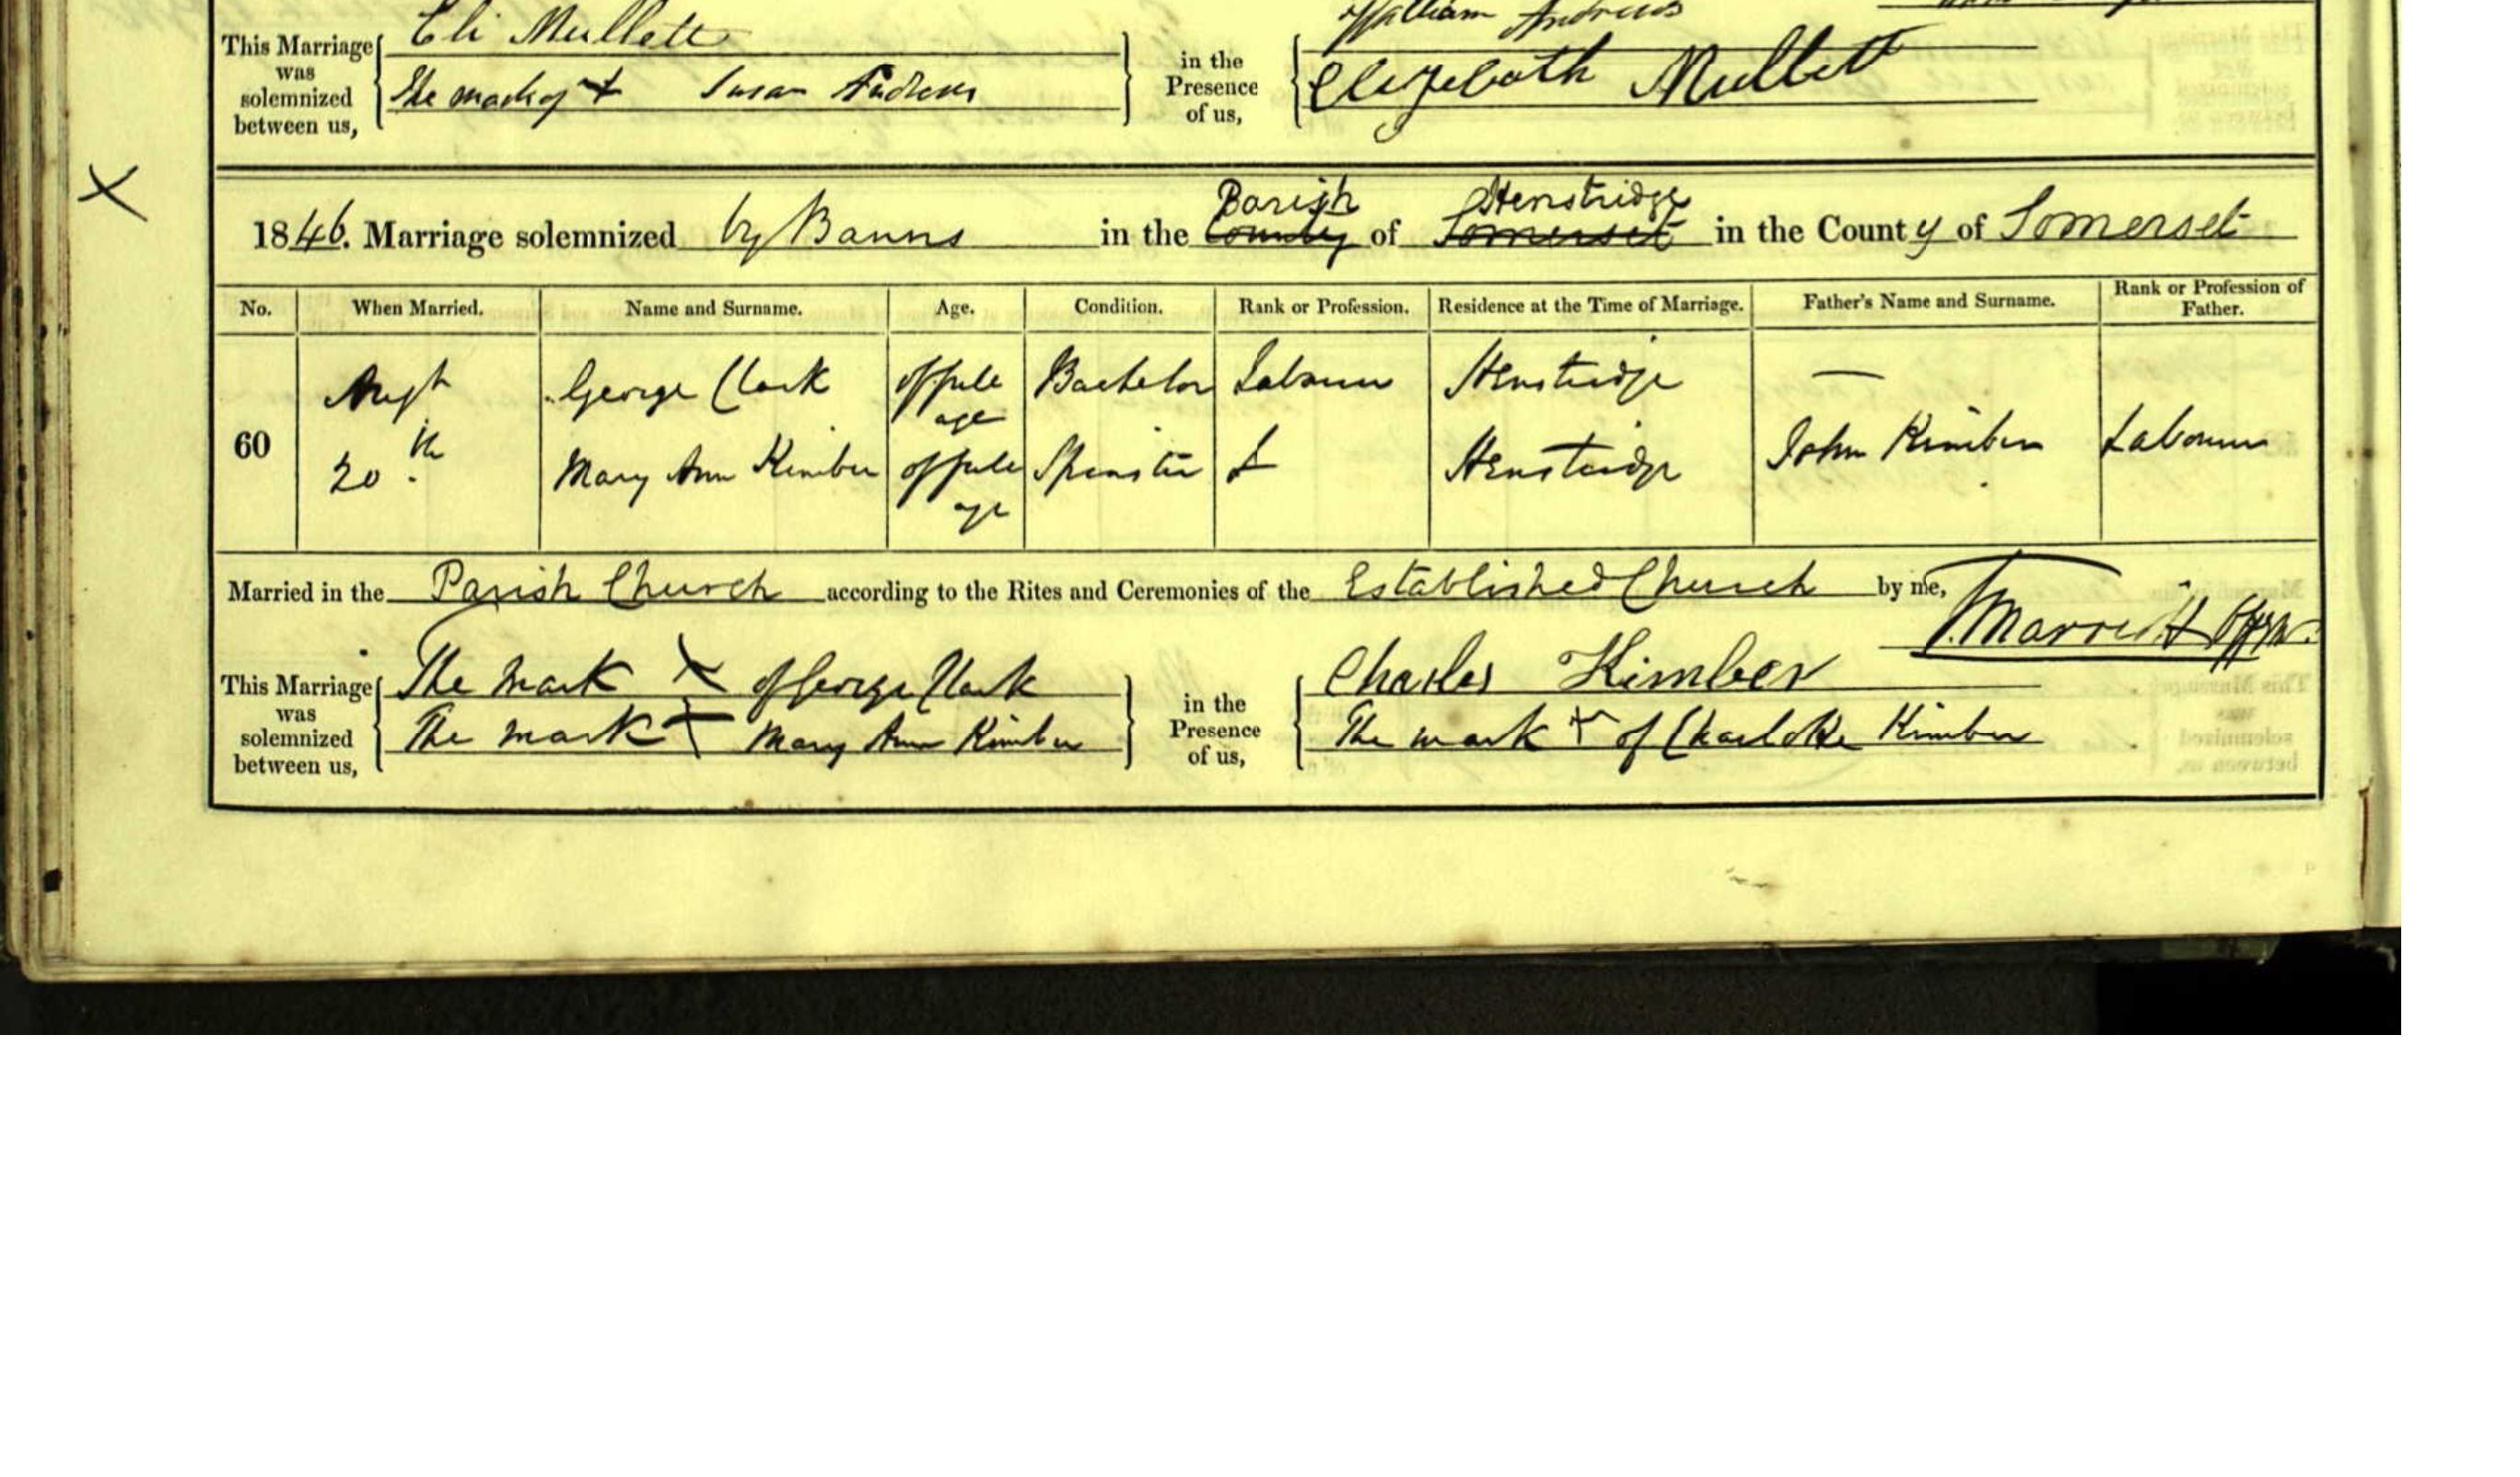 Eli Mullett
William Andrews
This Marriage was solemnized between us,
The mark of + Susan Andrews
in the Presence of us,
Elizebath Mullett
X
1846. Marriage solemnized by Banns in the County Parish of Somerset Henstridge in the County of Somerset
No. When Married. Name and Surname. Age. Condition. Rank or Profession. Residence at the Time of Marriage. Father's Name and Surname. Rank or Profession of Father.
60 Augt 20th
George Clark of full age Bachelor Labourer Henstridge —
Mary Ann Kimber of full age Spinster Henstridge John Kimber Labourer
Married in the Parish Church according to the Rites and Ceremonies of the Established Church by me,
Marriott
This Marriage was solemnized between us,
The mark X of George Clark
The mark + Mary Ann Kimber
in the Presence of us,
Charles Kimber
The mark + of Charlotte Kimber